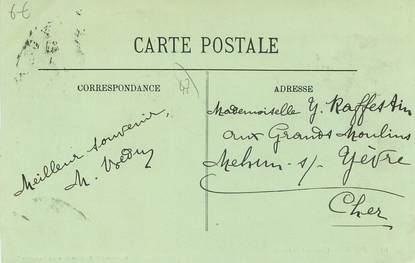 6€
CARTE POSTALE
CORRESPONDANCE
ADRESSE
Meilleur souvenir,
M.
Mademoiselle Y. Raffestin
aux Grands Moulins
Mehun-s/-Yèvre
Cher